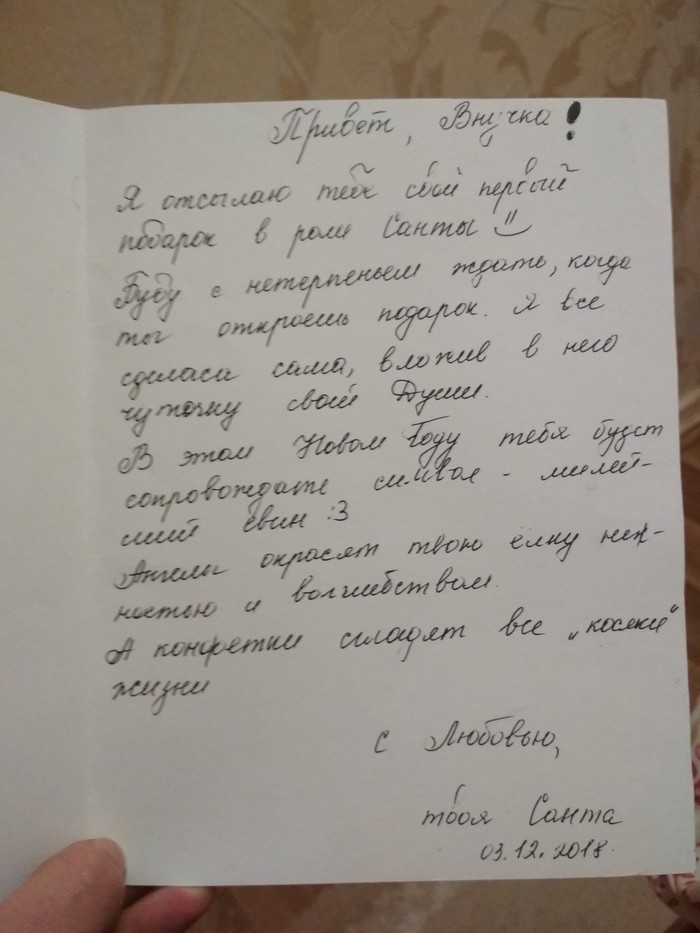 Привет, Внучка!
Я отсылаю тебе свой первый
подарок в роли Санты
Буду с нетерпеньем ждать, когда
ты откроешь подарок. Я все
сделаса сама, вложив в него
чуточку своей Души.
В этом Новом Году тебя будет
сопровождать символ - милей-
ший свин :3
Ангелы окрасят твою ёлку неж-
ностью и волшебством.
А конфетки сгладят все „косяки"
жизни
С Любовью,
твоя Санта
03.12.2018.